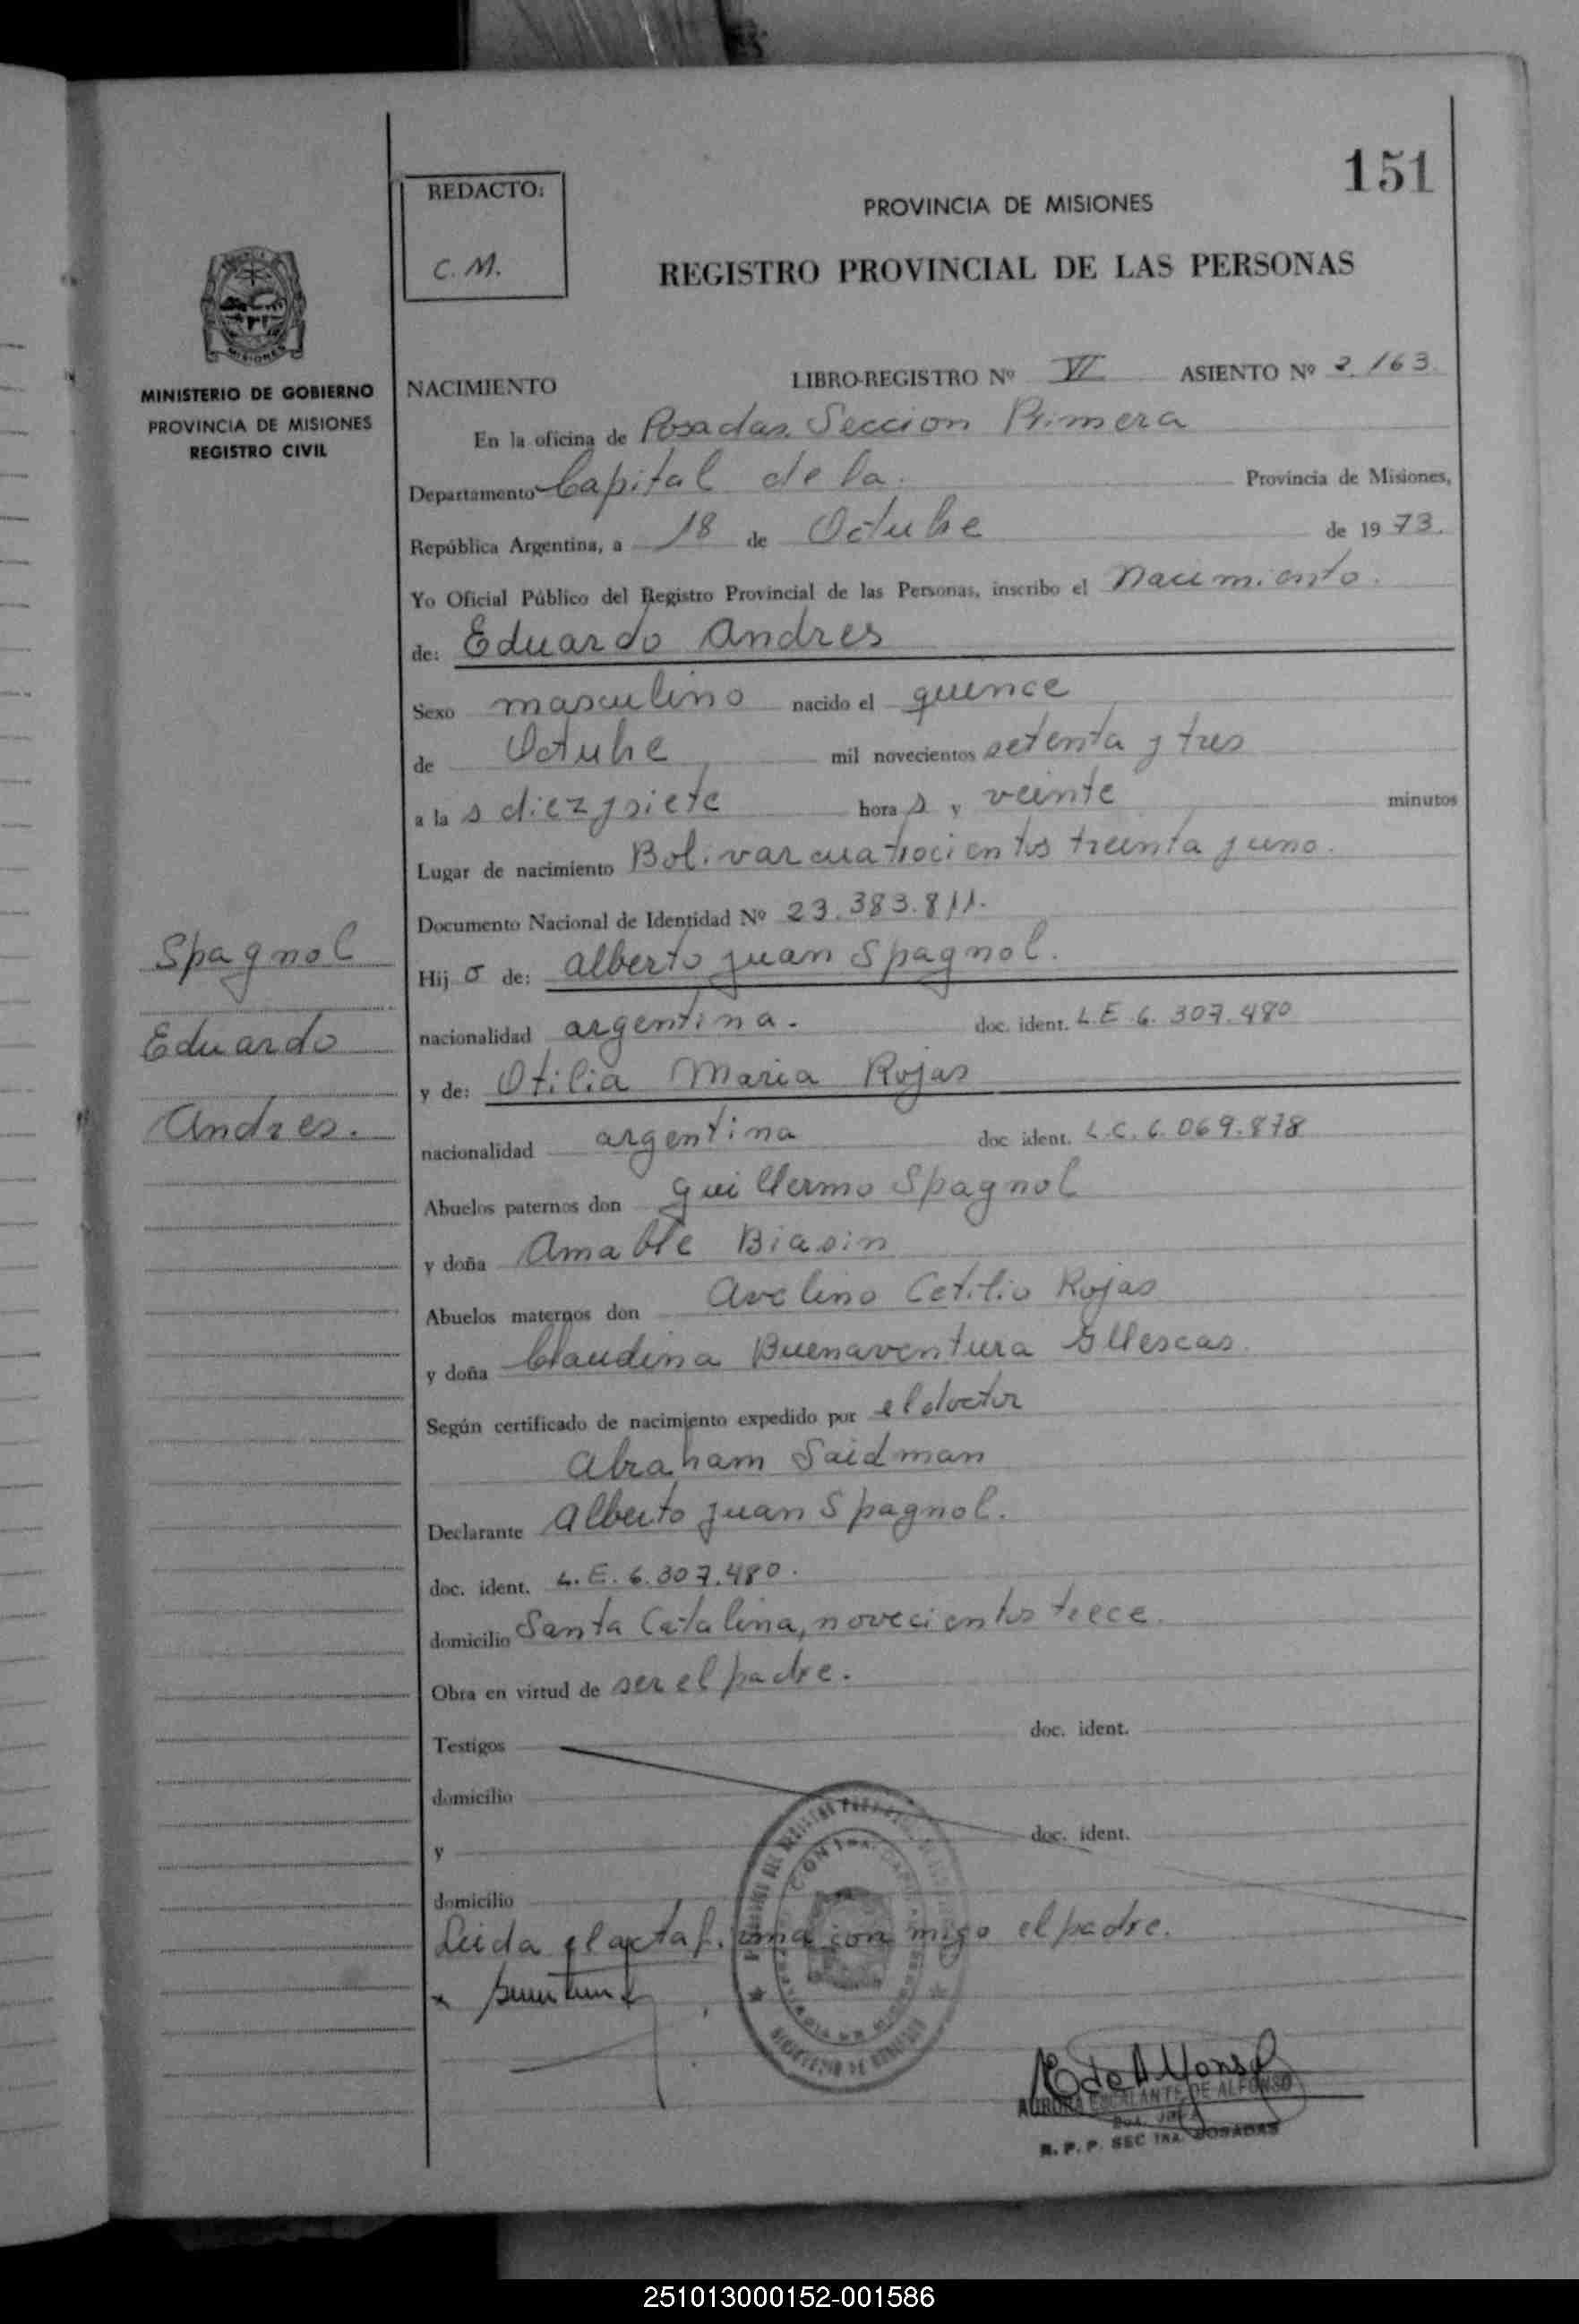 151
REDACTO:
C. M.
PROVINCIA DE MISIONES
REGISTRO PROVINCIAL DE LAS PERSONAS
MISIONES
MINISTERIO DE GOBIERNO
PROVINCIA DE MISIONES
REGISTRO CIVIL
NACIMIENTO LIBRO-REGISTRO Nº VI ASIENTO Nº 2.163
En la oficina de Posadas. Seccion Primera
Departamento Capital de la. Provincia de Misiones,
República Argentina, a 18 de Octubre de 1973.
Yo Oficial Público del Registro Provincial de las Personas, inscribo el nacimiento.
de: Eduardo Andres
Sexo masculino nacido el quince
de Octubre mil novecientos setenta y tres
a las diez y siete horas y veinte minutos
Lugar de nacimiento Bolivar cuatrocientos treinta y uno.
Documento Nacional de Identidad Nº 23.383.811.
Spagnol
Hijo de: Alberto Juan Spagnol.
Eduardo
nacionalidad argentina. doc. ident. L.E 6.307.480
y de: Otilia Maria Rojas
Andres.
nacionalidad argentina doc ident. L.C. 6.069.878
Abuelos paternos don Guillermo Spagnol
y doña Amable Biasin
Abuelos maternos don Avelino Cetilio Rojas
y doña Claudina Buenaventura Illescas.
Según certificado de nacimiento expedido por el doctor
Abraham Saidman
Declarante Alberto Juan Spagnol.
doc. ident. L.E. 6.307.480.
domicilio Santa Catalina, novecientos trece.
Obra en virtud de ser el padre.
Testigos doc. ident.
domicilio
y doc. ident.
domicilio
Leida el acta firma con migo el padre.
AURORA ESCALANTE DE ALFONSO
R. P. P. SEC 1RA. POSADAS
251013000152-001586